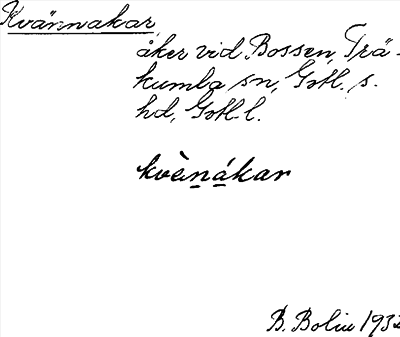 Kvännakar,
åker vid Bossen, Trä-
kumla sn, Gotl. s.
hd, Gotl. l.
kvènákar
B. Bolin 1932